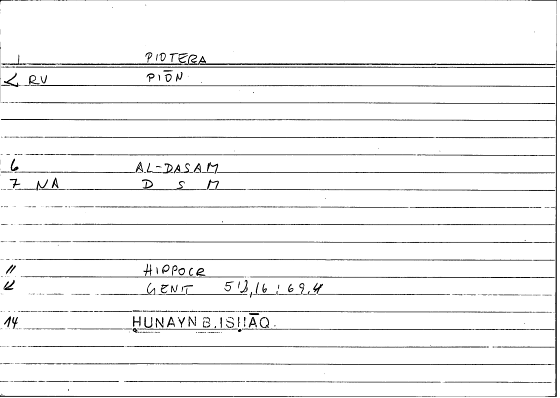 1 PIOTERA
2 RV PIŌN
6 AL-DASAM
7 NA D S M
11 HIPPOCR
12 GENIT
14 ḤUNAYN B. ISḤĀQ.